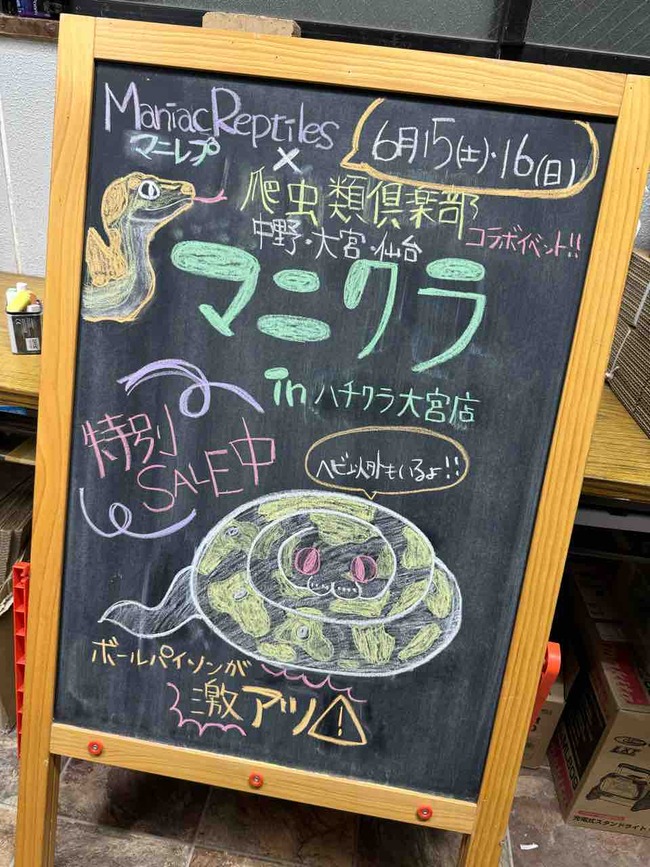 Maniac Reptiles
マニレプ
×
6月15(土)・16(日)
爬虫類倶楽部
中野・大宮・仙台
コラボイベント!!
マニクラ
in ハチクラ大宮店
特別
SALE中
ヘビ以外もいるよ!!
ボールパイソンが
激アツ!
充電式スタンドライト